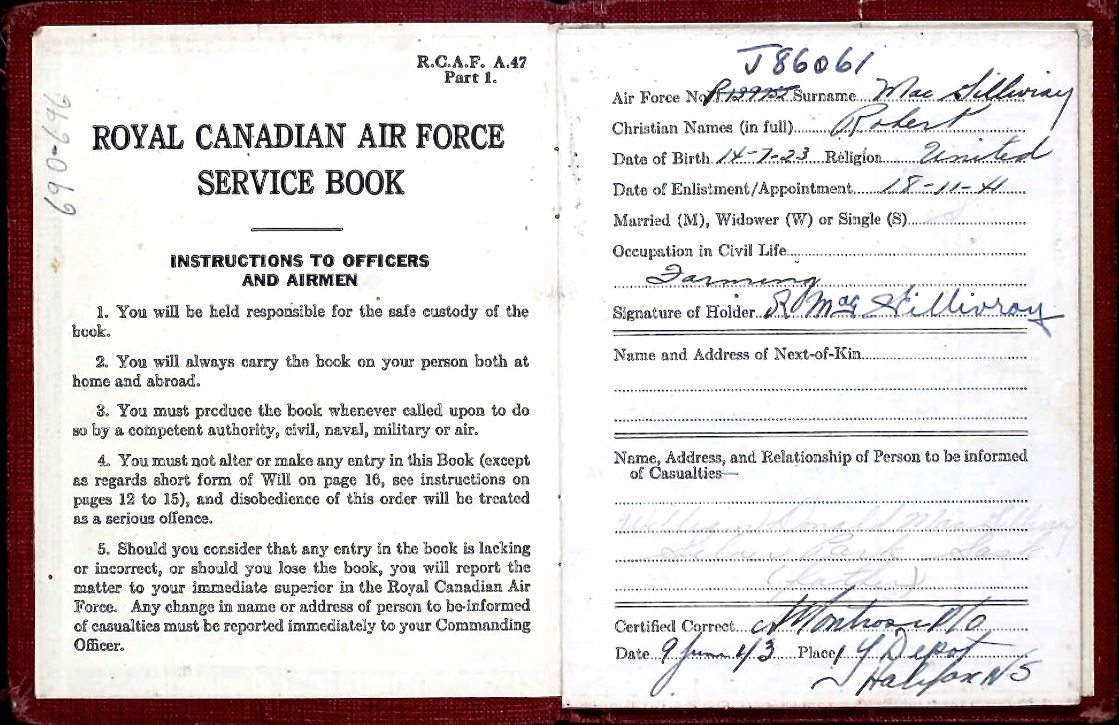 R.C.A.F. A.47
Part 1.
690-696
ROYAL CANADIAN AIR FORCE
SERVICE BOOK
INSTRUCTIONS TO OFFICERS
AND AIRMEN
1. You will be held responsible for the safe custody of the
book.
2. You will always carry the book on your person both at
home and abroad.
3. You must produce the book whenever called upon to do
so by a competent authority, civil, naval, military or air.
4. You must not alter or make any entry in this Book (except
as regards short form of Will on page 16, see instructions on
pages 12 to 15), and disobedience of this order will be treated
as a serious offence.
5. Should you consider that any entry in the book is lacking
or incorrect, or should you lose the book, you will report the
matter to your immediate superior in the Royal Canadian Air
Force. Any change in name or address of person to be informed
of casualties must be reported immediately to your Commanding
Officer.
J86061
Air Force No. Surname Mac Gillivray
Christian Names (in full) Robert
Date of Birth 14-7-23 Religion United
Date of Enlistment/Appointment 18-11-41
Married (M), Widower (W) or Single (S) S
Occupation in Civil Life
Farming
Signature of Holder R MacGillivray
Name and Address of Next-of-Kin
Name, Address, and Relationship of Person to be informed
of Casualties—
William Donald MacGillivray
Silver Park Sask
(father)
Certified Correct P/O
Date 9 June 43 Place 1 Y Depot
Halifax NS